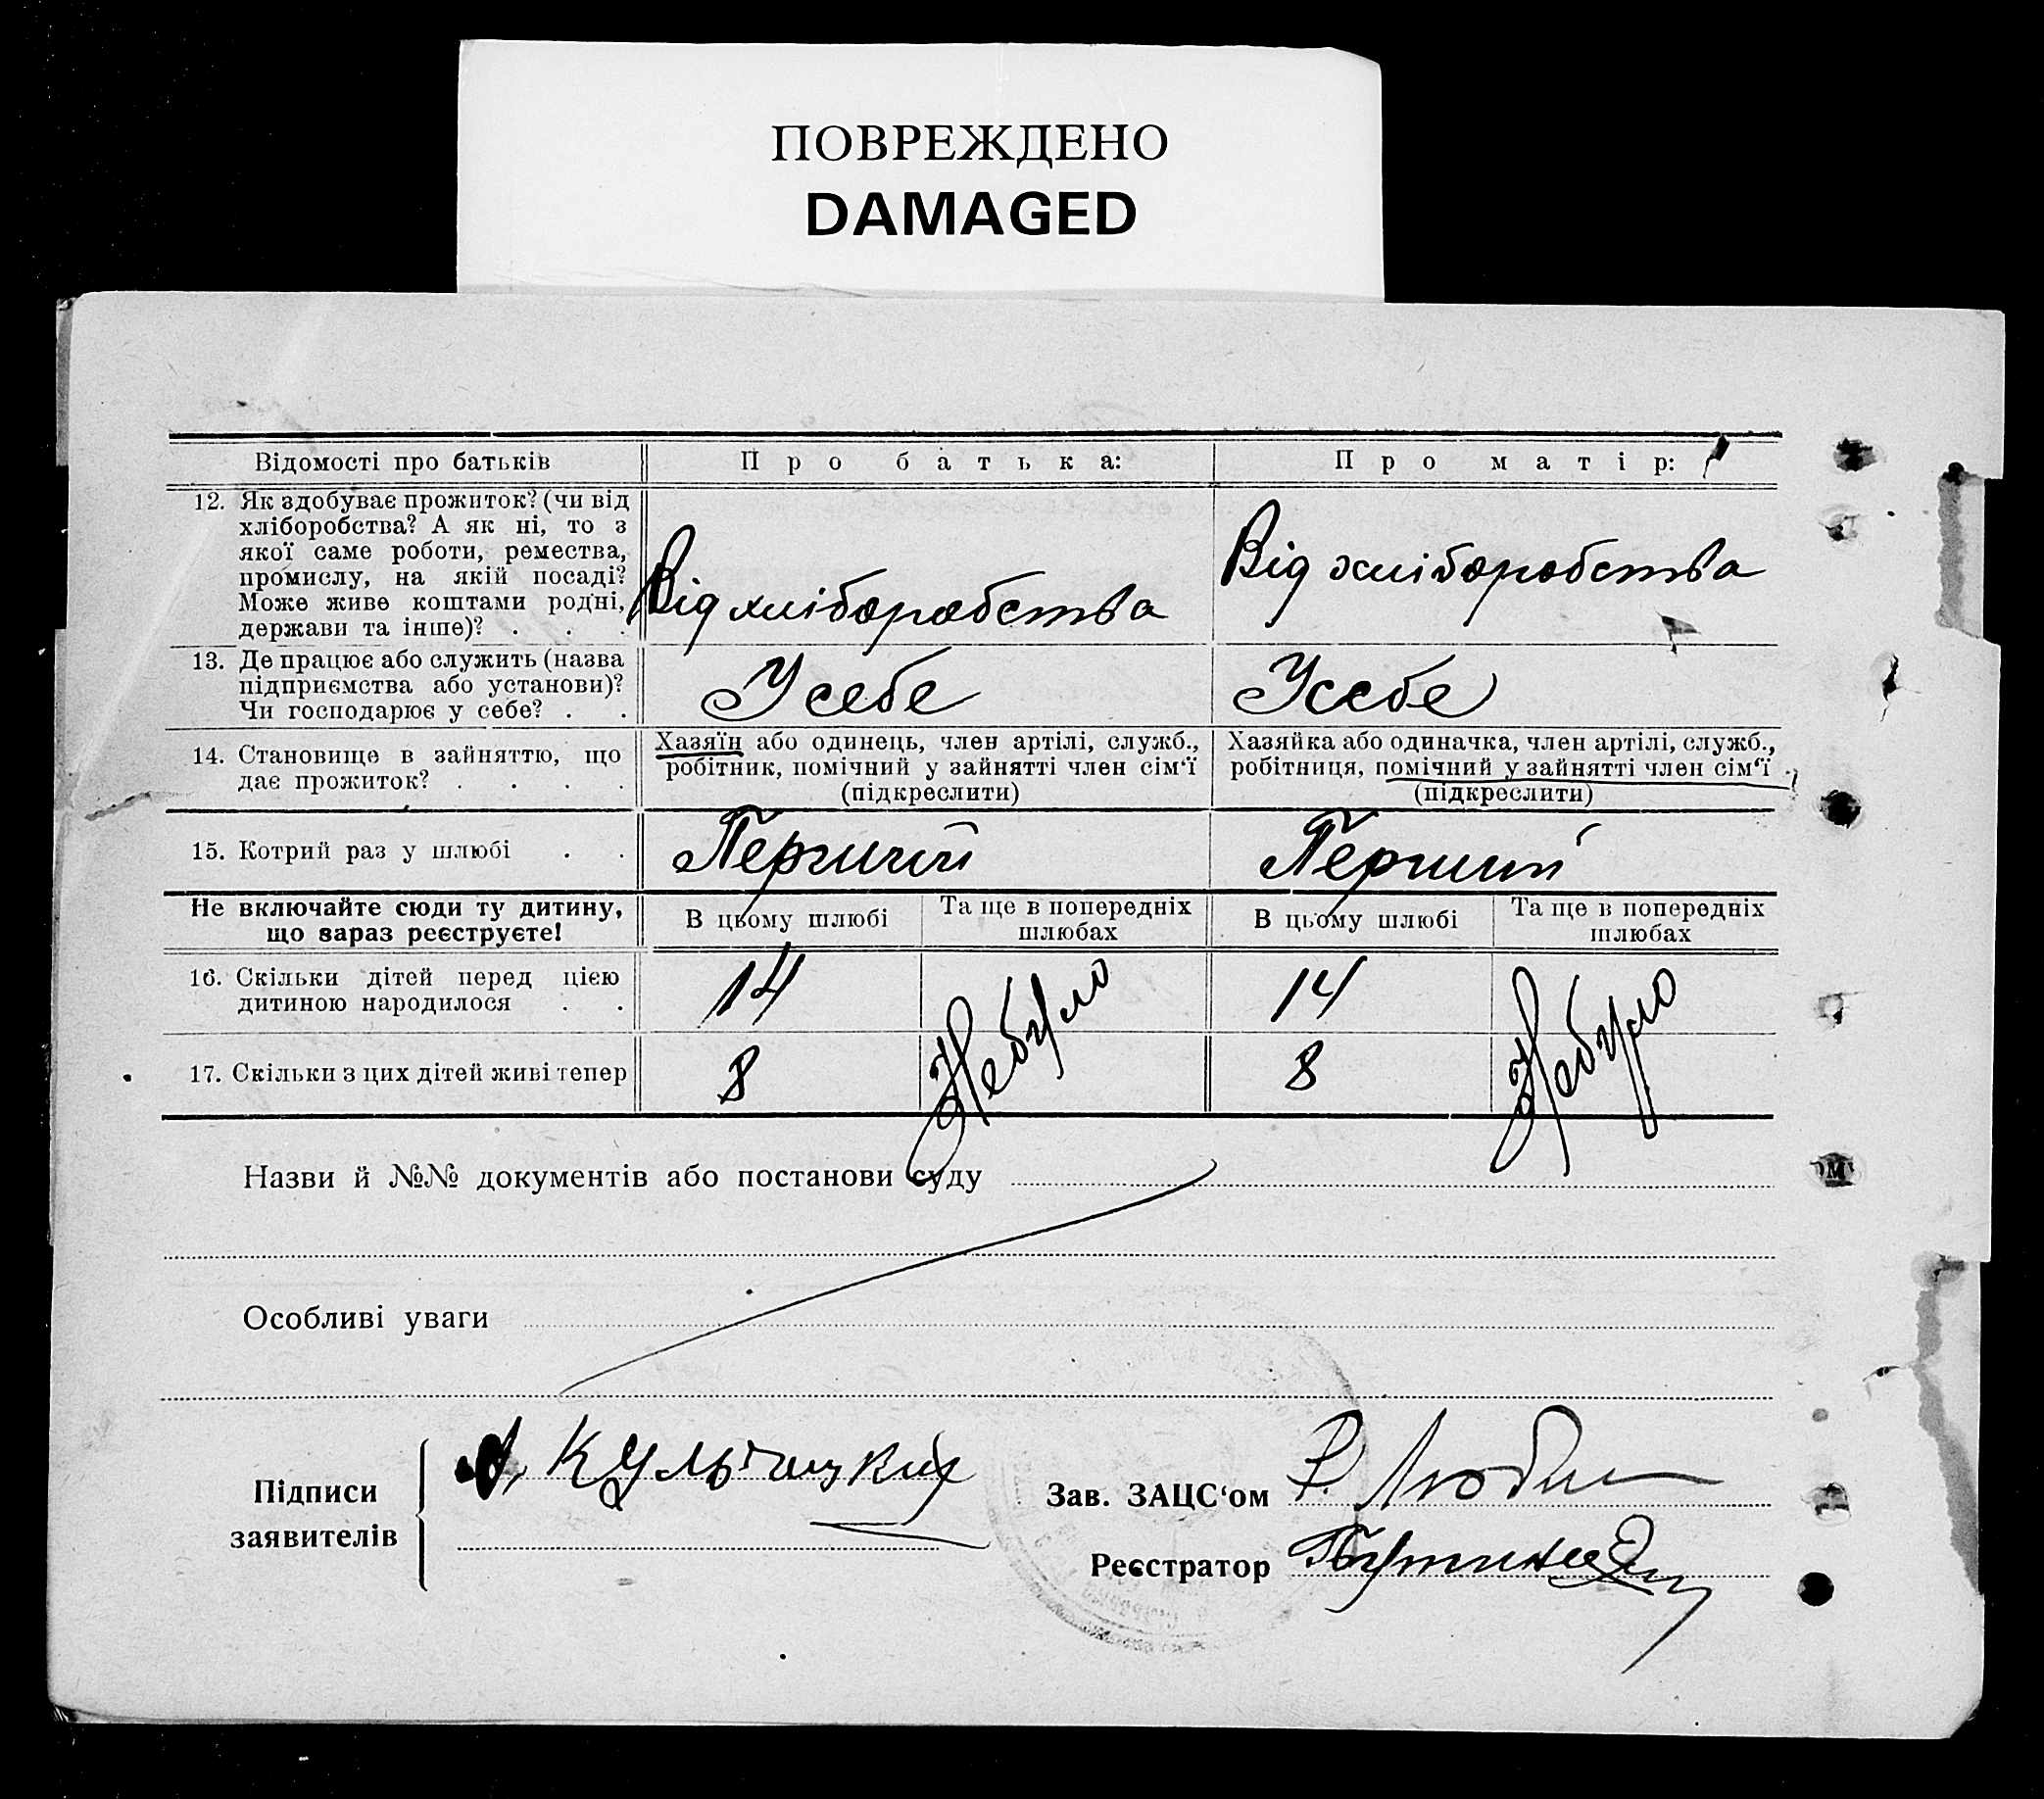 ПОВРЕЖДЕНО
DAMAGED
Відомості про батьків
Про батька:
Про матір:
12. Як здобуває прожиток? (чи від
хліборобства? А як ні, то з
якої саме роботи, ремества,
промислу, на якій посаді?
Може живе коштами родні,
держави та інше)? . . .
Від хліборобства
Від хліборобства
13. Де працює або служить (назва
підприємства або установи)?
Чи господарює у себе? . .
У себе
У себе
14. Становище в зайняттю, що
дає прожиток? . . . .
Хазяїн або одинець, член артілі, служб.,
робітник, помічний у зайнятті член сім‘ї
(підкреслити)
Хазяйка або одиначка, член артілі, служб.,
робітниця, помічний у зайнятті член сім‘ї
(підкреслити)
15. Котрий раз у шлюбі . .
Перший
Перший
Не включайте сюди ту дитину,
що зараз реєструєте!
В цьому шлюбі
Та ще в попередніх
шлюбах
В цьому шлюбі
Та ще в попередніх
шлюбах
16. Скільки дітей перед цією
дитиною народилося . .
14
Небуло
14
Небуло
17. Скільки з цих дітей живі тепер
8
8
Назви й №№ документів або постанови суду
Особливі уваги
Підписи
заявителів
Кульчицкий
Зав. ЗАЦС‘ом
Реєстратор